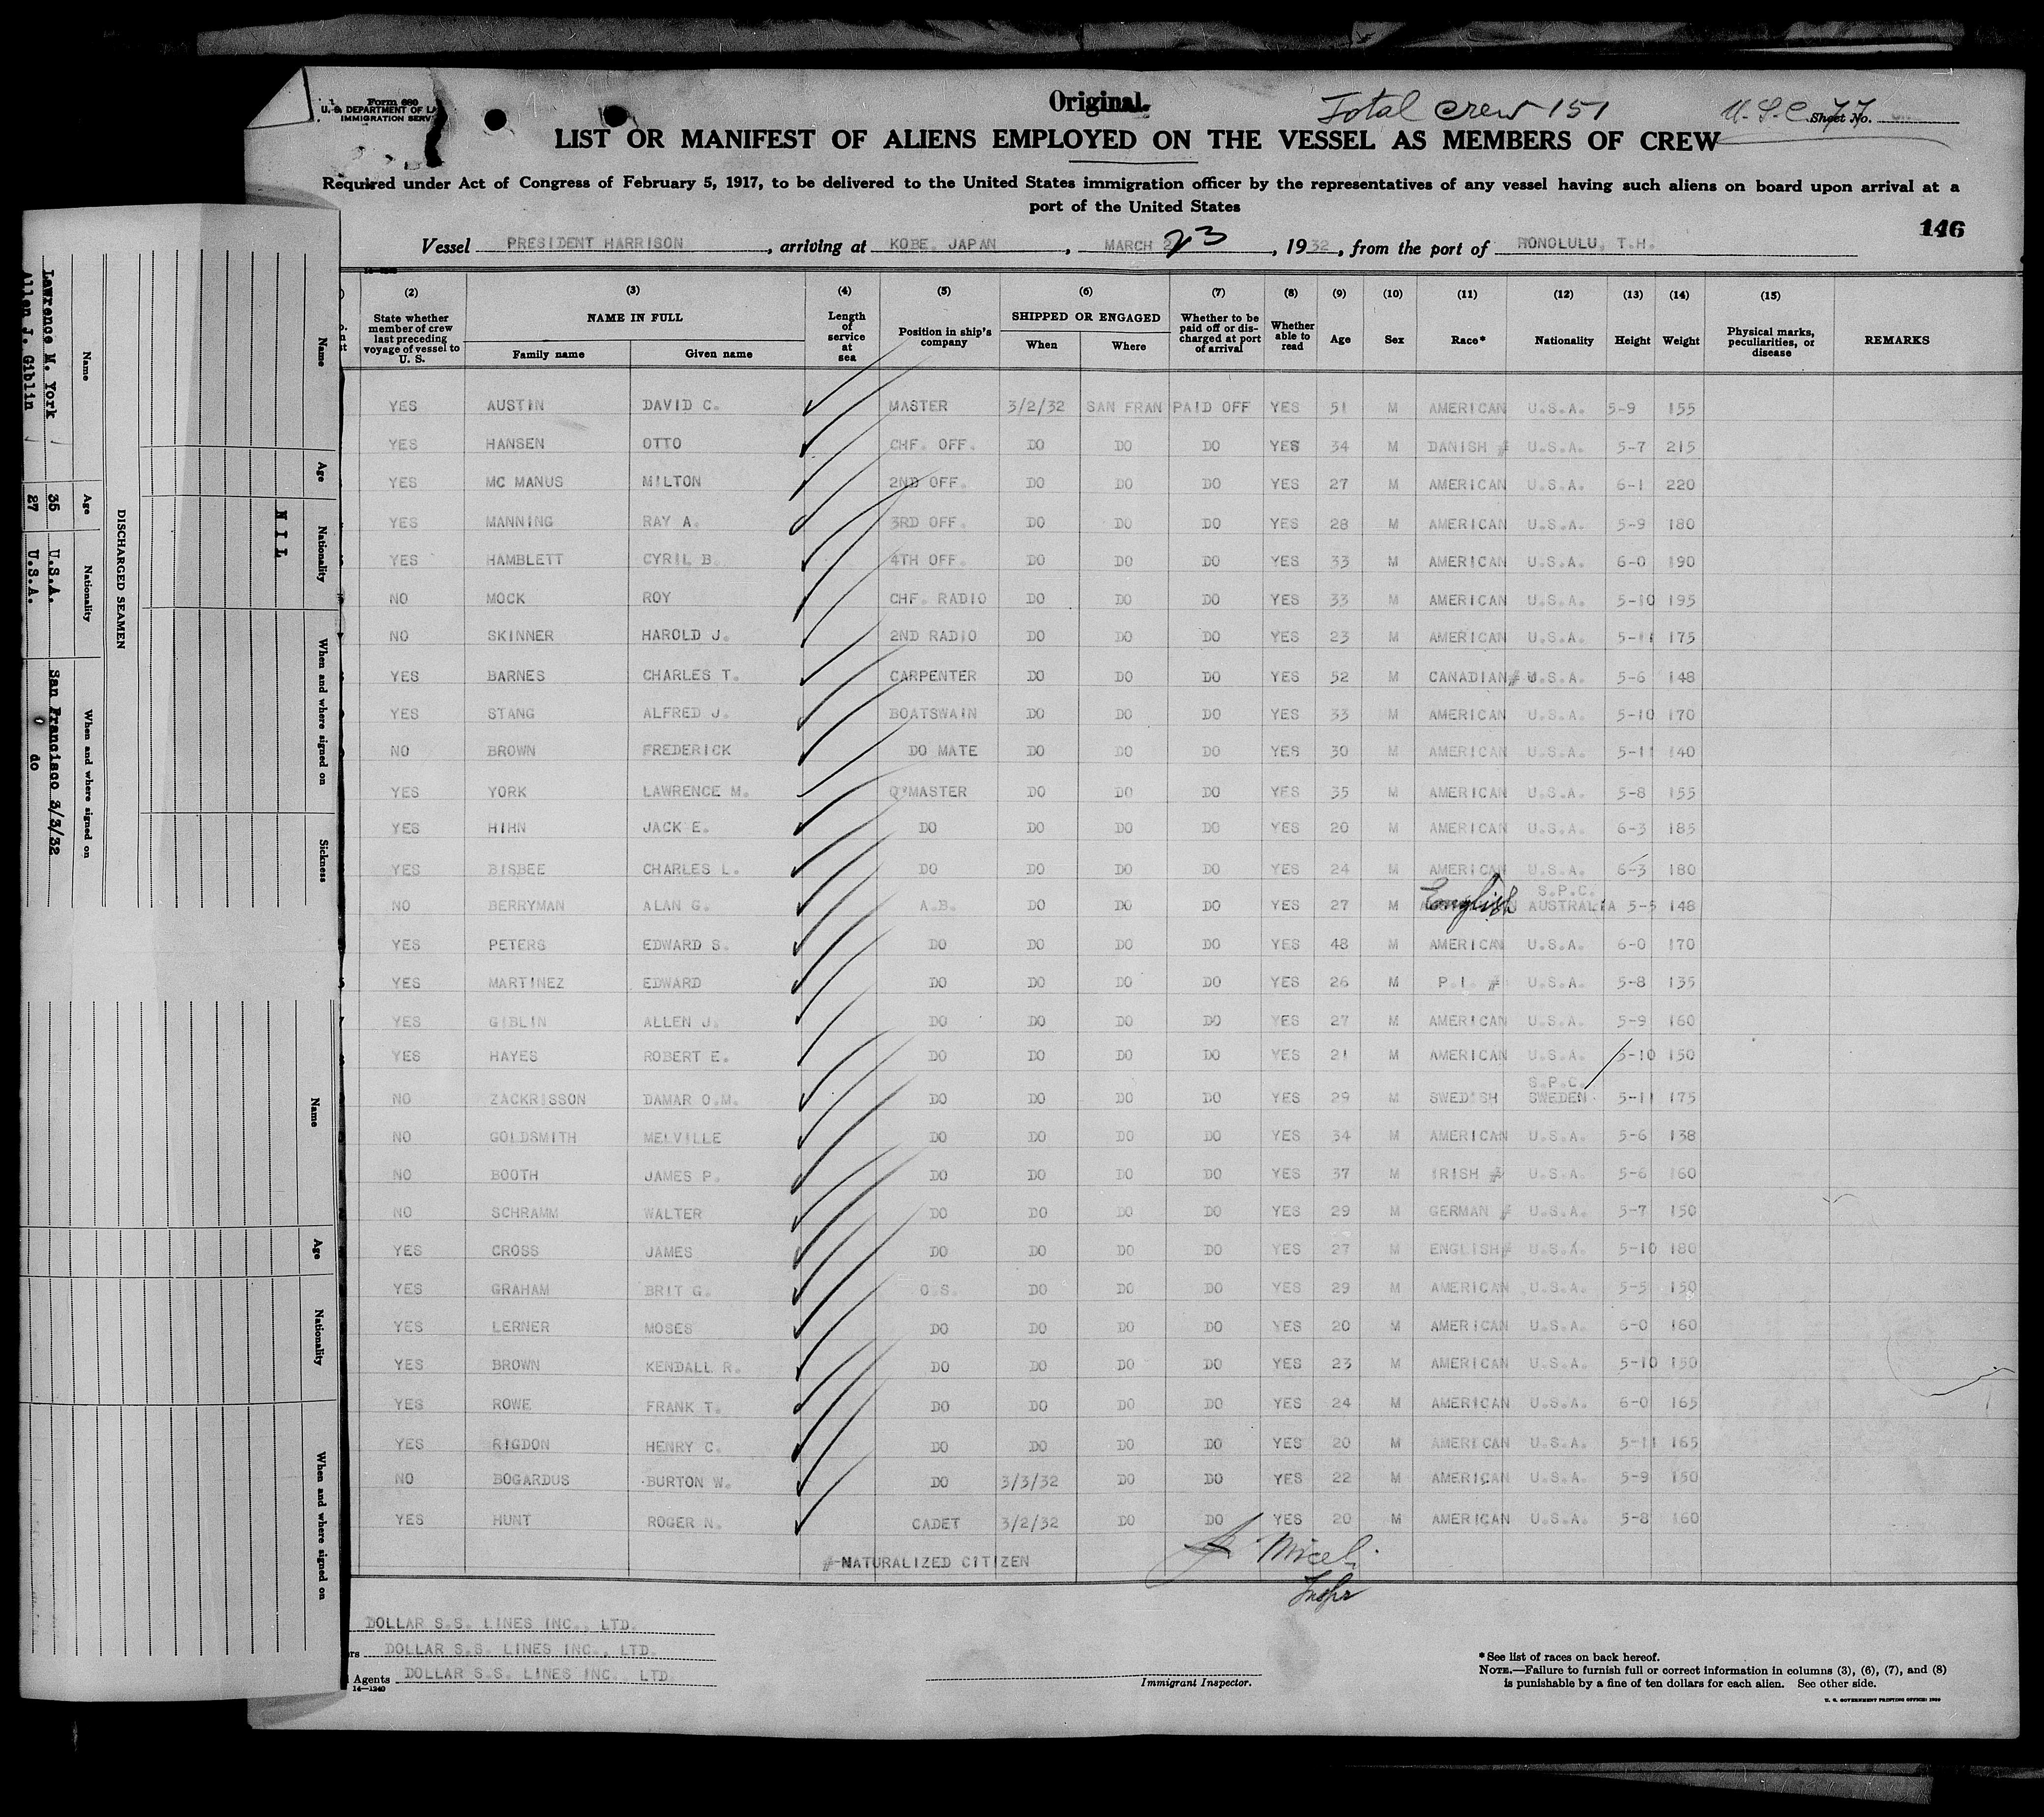 Form 680
U. S. DEPARTMENT OF LA
IMMIGRATION SERV
Original.
Total Crew 151
U.S.C. 77
Sheet No.
LIST OR MANIFEST OF ALIENS EMPLOYED ON THE VESSEL AS MEMBERS OF CREW
Required under Act of Congress of February 5, 1917, to be delivered to the United States immigration officer by the representatives of any vessel having such aliens on board upon arrival at a
port of the United States
146
Vessel PRESIDENT HARRISON, arriving at KOBE, JAPAN, MARCH 23, 1932, from the port of HONOLULU, T.H.
14-1240
(2) (3) (4) (5) (6) (7) (8) (9) (10) (11) (12) (13) (14) (15)
State whether member of crew last preceding voyage of vessel to U. S. NAME IN FULL Family name Given name Length of service at sea Position in ship's company SHIPPED OR ENGAGED When Where Whether to be paid off or discharged at port of arrival Whether able to read Age Sex Race* Nationality Height Weight Physical marks, peculiarities, or disease REMARKS
YES AUSTIN DAVID C. MASTER 3/2/32 SAN FRAN PAID OFF YES 51 M AMERICAN U.S.A. 5-9 155
YES HANSEN OTTO CHF. OFF. DO DO DO YES 34 M DANISH # U.S.A. 5-7 215
YES MC MANUS MILTON 2ND OFF. DO DO DO YES 27 M AMERICAN U.S.A. 6-1 220
YES MANNING RAY A. 3RD OFF. DO DO DO YES 28 M AMERICAN U.S.A. 5-9 180
YES HAMBLETT CYRIL B. 4TH OFF. DO DO DO YES 33 M AMERICAN U.S.A. 6-0 190
NO MOCK ROY CHF. RADIO DO DO DO YES 33 M AMERICAN U.S.A. 5-10 195
NO SKINNER HAROLD J. 2ND RADIO DO DO DO YES 23 M AMERICAN U.S.A. 5-11 175
YES BARNES CHARLES T. CARPENTER DO DO DO YES 52 M CANADIAN # U.S.A. 5-6 148
YES STANG ALFRED J. BOATSWAIN DO DO DO YES 33 M AMERICAN U.S.A. 5-10 170
NO BROWN FREDERICK DO MATE DO DO DO YES 30 M AMERICAN U.S.A. 5-11 140
YES YORK LAWRENCE M. Q'MASTER DO DO DO YES 35 M AMERICAN U.S.A. 5-8 155
YES HIHN JACK E. DO DO DO DO YES 20 M AMERICAN U.S.A. 6-3 185
YES BISBEE CHARLES L. DO DO DO DO YES 24 M AMERICAN U.S.A. 6-3 180
NO BERRYMAN ALAN G. A.B. DO DO DO YES 27 M English S.P.C. AUSTRALIA 5-5 148
YES PETERS EDWARD S. DO DO DO DO YES 48 M AMERICAN U.S.A. 6-0 170
YES MARTINEZ EDWARD DO DO DO DO YES 26 M P.I. # U.S.A. 5-8 135
YES GIBLIN ALLEN J. DO DO DO DO YES 27 M AMERICAN U.S.A. 5-9 160
YES HAYES ROBERT E. DO DO DO DO YES 21 M AMERICAN U.S.A. 5-10 150
NO ZACKRISSON DAMAR O.M. DO DO DO DO YES 29 M SWEDISH S.P.C. SWEDEN 5-11 175
NO GOLDSMITH MELVILLE DO DO DO DO YES 34 M AMERICAN U.S.A. 5-6 138
NO BOOTH JAMES P. DO DO DO DO YES 37 M IRISH # U.S.A. 5-6 160
NO SCHRAMM WALTER DO DO DO DO YES 29 M GERMAN # U.S.A. 5-7 150
YES CROSS JAMES DO DO DO DO YES 27 M ENGLISH # U.S.A. 5-10 180
YES GRAHAM BRIT G. O.S. DO DO DO YES 29 M AMERICAN U.S.A. 5-5 150
YES LERNER MOSES DO DO DO DO YES 20 M AMERICAN U.S.A. 6-0 160
YES BROWN KENDALL R. DO DO DO DO YES 23 M AMERICAN U.S.A. 5-10 150
YES ROWE FRANK T. DO DO DO DO YES 24 M AMERICAN U.S.A. 6-0 165
YES RIGDON HENRY C. DO DO DO DO YES 20 M AMERICAN U.S.A. 5-11 165
NO BOGARDUS BURTON W. DO 3/3/32 DO DO YES 22 M AMERICAN U.S.A. 5-9 150
YES HUNT ROGER N. CADET 3/2/32 DO DO YES 20 M AMERICAN U.S.A. 5-8 160
#-NATURALIZED CITIZEN
Miceli
Inspr
DOLLAR S.S. LINES INC., LTD.
rs DOLLAR S.S. LINES INC., LTD.
Agents DOLLAR S.S. LINES INC., LTD.
14-1240
Immigrant Inspector.
*See list of races on back hereof.
NOTE.—Failure to furnish full or correct information in columns (3), (6), (7), and (8)
is punishable by a fine of ten dollars for each alien. See other side.
U. S. GOVERNMENT PRINTING OFFICE: 1930
Name Age Nationality When and where signed on Sickness
NIL
DISCHARGED SEAMEN
Name Age Nationality When and where signed on
Lawrence M. York 35 U.S.A. San Francisco 3/3/32
Allen J. Giblin 27 U.S.A. do
Name Age Nationality When and where signed on